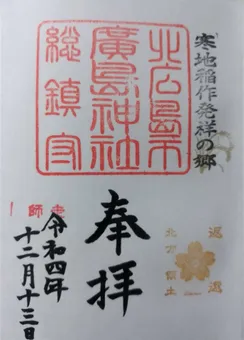 寒地稲作発祥の郷
北広島市
廣島神社
総鎮守
奉拝
返還
北方領土
令和四年
十二月十三日